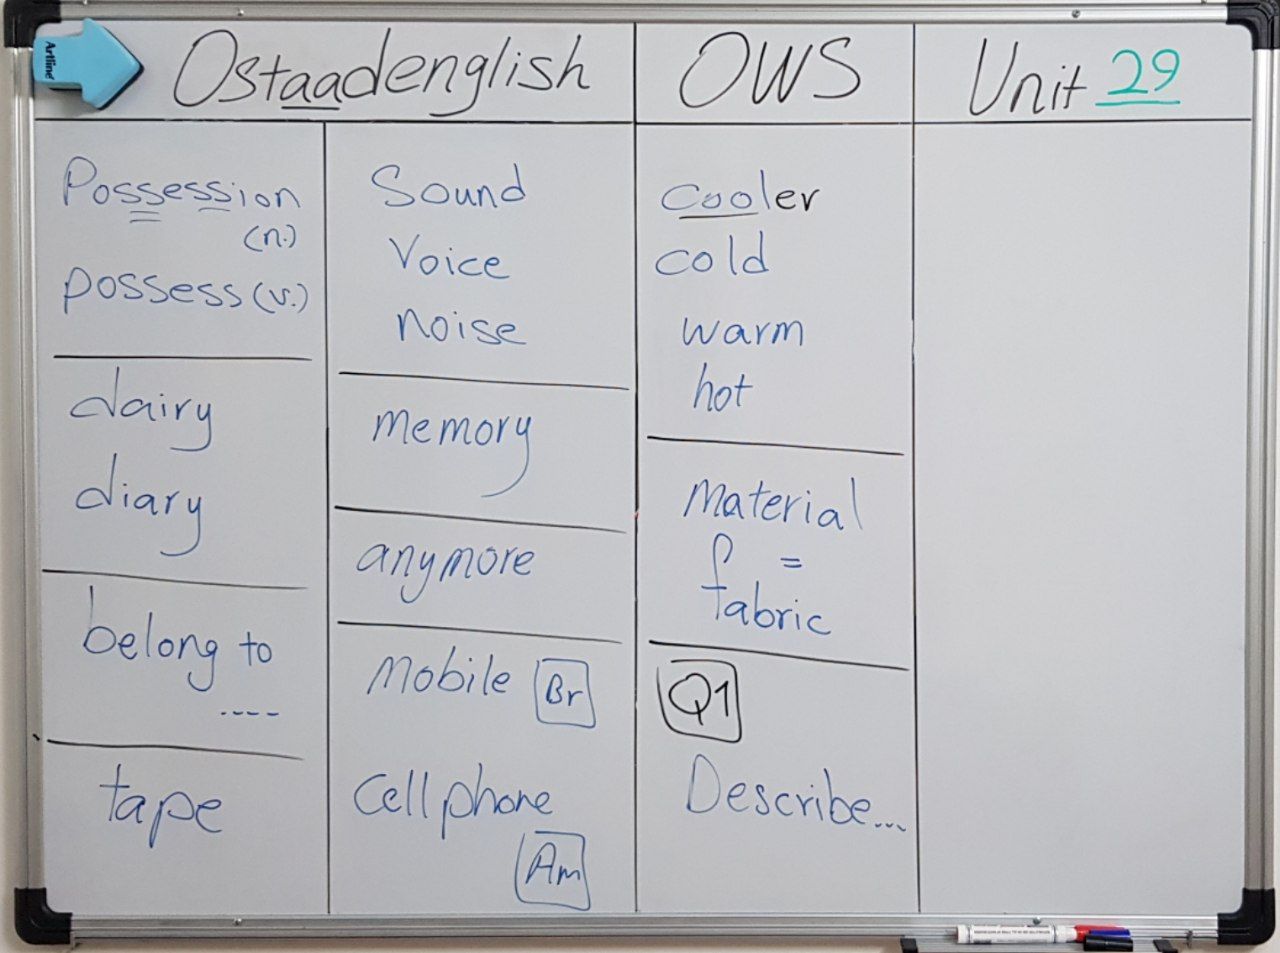 Artline
Ostaadenglish
OWS
Unit 29
Possession
(n.)
possess (v.)
dairy
diary
belong to
....
tape
Sound
Voice
noise
memory
anymore
Mobile Br
Cell phone
Am
cooler
cold
warm
hot
Material
=
fabric
Q1
Describe...